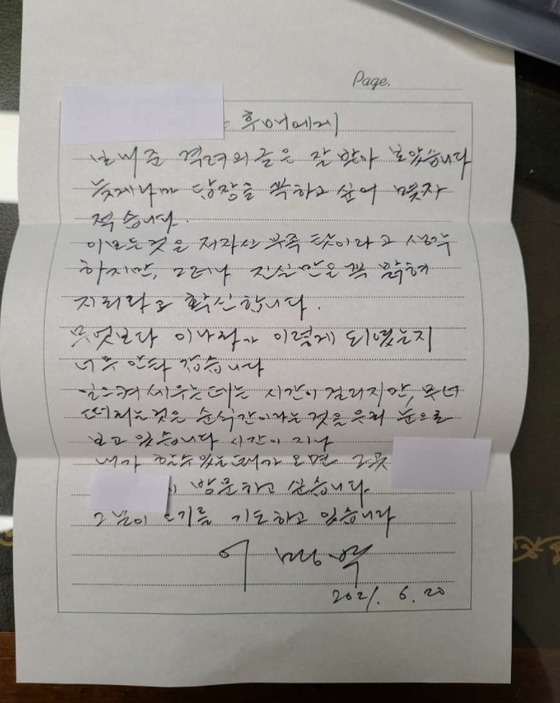 Page.
후배에게
보내준 격려의 글은 잘 받아 보았습니다
늦게나마 답장을 꼭 하고 싶어 몇자
적습니다.
이모든것은 저자신 부족 탓이라고 생각
하지만, 그러나 진실만은 꼭 밝혀
지리라고 확신합니다.
무엇보다 이나라가 이렇게 되였는지
너무 안타 갑습니다
일으켜 세우는데는 시간이 걸리지만, 무너
떠리는것은 순식간이라는것을 우리 눈으로
보고 있습니다 시간이 지나
내가 할수있는때가 오면 그곳
방문하고 싶습니다
그날이 오기를 기도하고 있습니다
이명박
2021. 6. 20